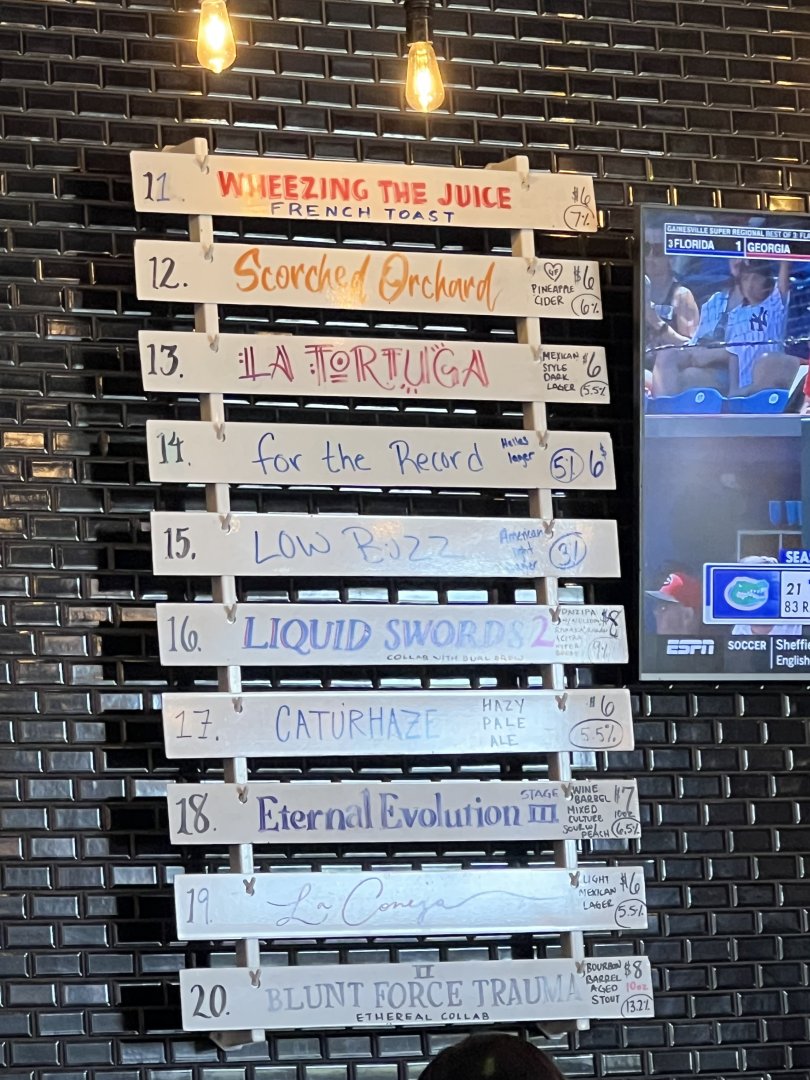 11. WHEEZING THE JUICE $6
FRENCH TOAST 7%
12. Scorched Orchard GF $6
PINEAPPLE
CIDER 6%
13. LA TORTUGA MEXICAN $6
STYLE
DARK
LAGER 5.5%
14. for the Record Helles
lager 5% 6$
15. LOW BUZZ American
3%
16. LIQUID SWORDS 2 $8
COLLAB WITH DUAL BREW 9%
17. CATURHAZE HAZY $6
PALE
ALE 5.5%
18. Eternal Evolution STAGE
III
WINE $7
BARREL
MIXED 10oz
CULTURE
SOUR W/
PEACH 6.5%
19. La Coneja LIGHT $6
MEXICAN
LAGER 5.5%
20. BLUNT FORCE TRAUMA
II
ETHEREAL COLLAB
BOURBON $8
BARREL
AGED 10oz
STOUT 13.2%
GAINESVILLE SUPER REGIONAL BEST OF 3: FLA
3 FLORIDA 1 GEORGIA
NY
SEA
21
83 R
ESPN SOCCER Sheffie
English